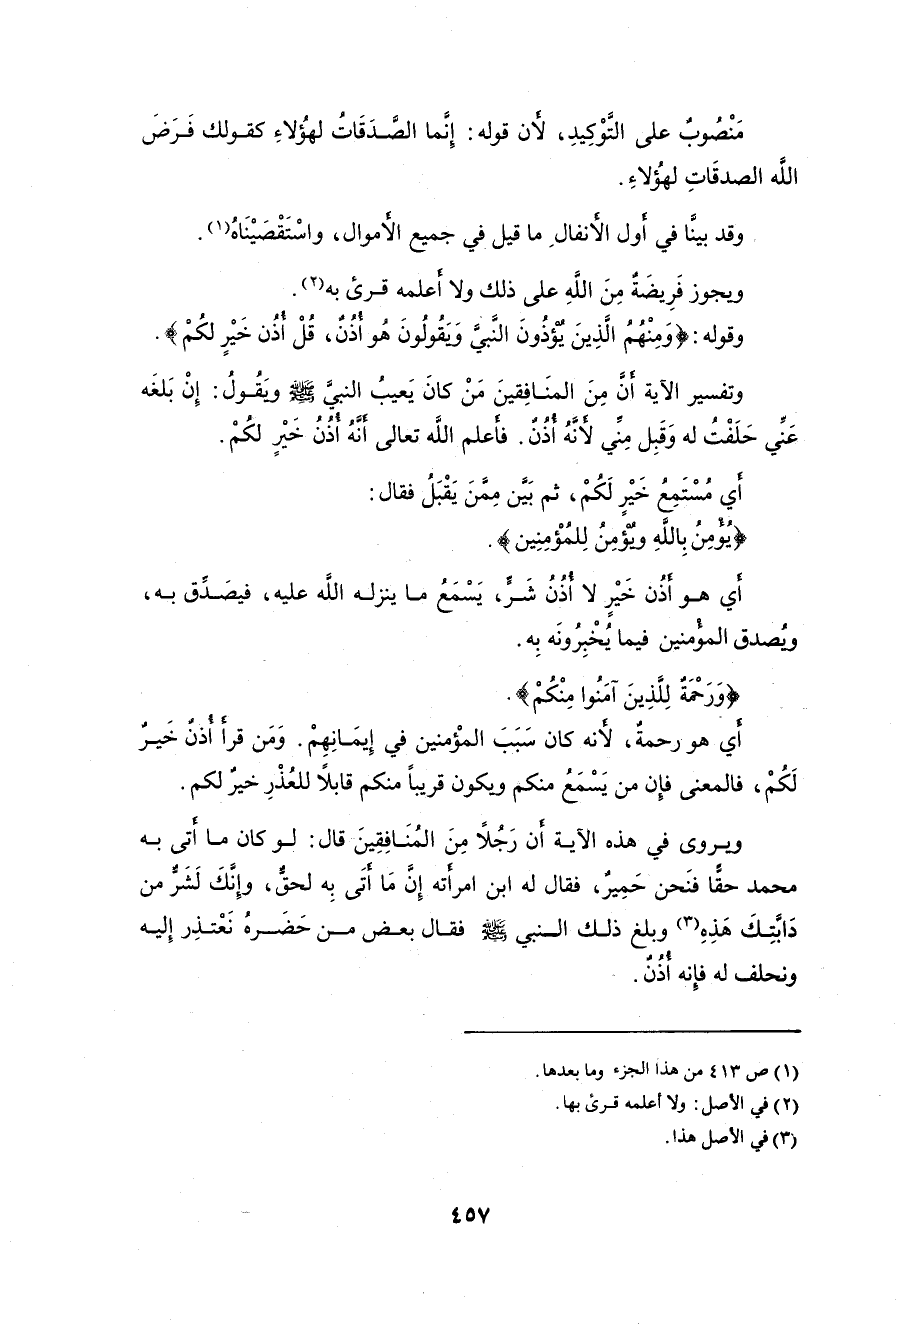 مَنْصُوبٌ على التَّوْكِيدِ، لأَن قوله: إِنَّما الصَّدَقَاتُ لهؤُلاءِ كقولك فَرَضَ
اللَّه الصدقَاتِ لهؤُلاءِ.
وقد بينَّا في أَول الأَنفال ما قيل في جميع الأَموال، واسْتَقْصَيْنَاهُ(١).
ويجوز فَرِيضَةٌ مِنَ اللَّهِ على ذلك ولا أَعلمه قرئ به(٢).
وقوله: ﴿وَمِنْهُمُ الَّذِينَ يُؤْذُونَ النَّبِيَّ وَيَقُولُونَ هُو أُذُنٌ، قُلْ أُذُن خَيْرٍ لكُمْ﴾.
وتفسير الآية أَنَّ مِنَ المنَافِقينَ مَنْ كانَ يَعيبُ النبيَّ ﷺ ويَقُولُ: إِنْ بَلغَه
عَنِّي حَلَفْتُ له وَقَبِل مِنِّي لأَنَّهُ أُذُنٌ. فأَعلم اللَّه تعالى أَنَّهُ أُذُنُ خَيْرٍ لكُمْ.
أَي مُسْتَمِعُ خَيْرٍ لَكُمْ، ثم بَيَّن مِمَّنَ يَقْبَلُ فقال:
﴿يُؤْمِنُ بِاللَّهِ ويُؤْمِنُ لِلمُؤْمِنِين﴾.
أَي هو أُذُن خَيْرٍ لا أُذُنُ شَرٍّ، يَسْمَعُ ما ينزله اللَّه عليه، فيصَدِّق به،
ويُصدق المؤْمنين فيما يُخْبِرُونَه بِه.
﴿وَرَحْمَةٌ لِلَّذِينَ آمَنُوا مِنْكُمْ﴾.
أَي هو رحمةٌ، لأَنه كان سَبَبَ المؤمنين في إِيمَانِهِمْ. وَمَن قرأَ أُذنٌ خَيرٌ
لَكُمْ، فالمعنى فإِن من يَسْمَعُ منكم ويكون قريباً منكم قابلاً للعُذْرِ خيرٌ لكم.
ويروى في هذه الآية أَن رَجُلًا مِنَ المُنَافِقِينَ قال: لو كان ما أَتى به
محمد حقًّا فَنَحن حَمِيرٌ، فقال له ابن امرأَته إِنَّ مَا أَتَى بِه لحقٌّ، وإِنَّكَ لَشَرٌّ من
دَابَّتِكَ هَذِهِ(٣) وبلغ ذلك النبي ﷺ فقال بعض من حَضَرهُ نَعْتذِر إِليه
ونحلف له فإِنه أُذُنٌ.
(١) ص ٤١٣ من هذا الجزء وما بعدها.
(٢) في الأصل: ولا أعلمه قرئ بها.
(٣) في الأصل هذا.
٤٥٧